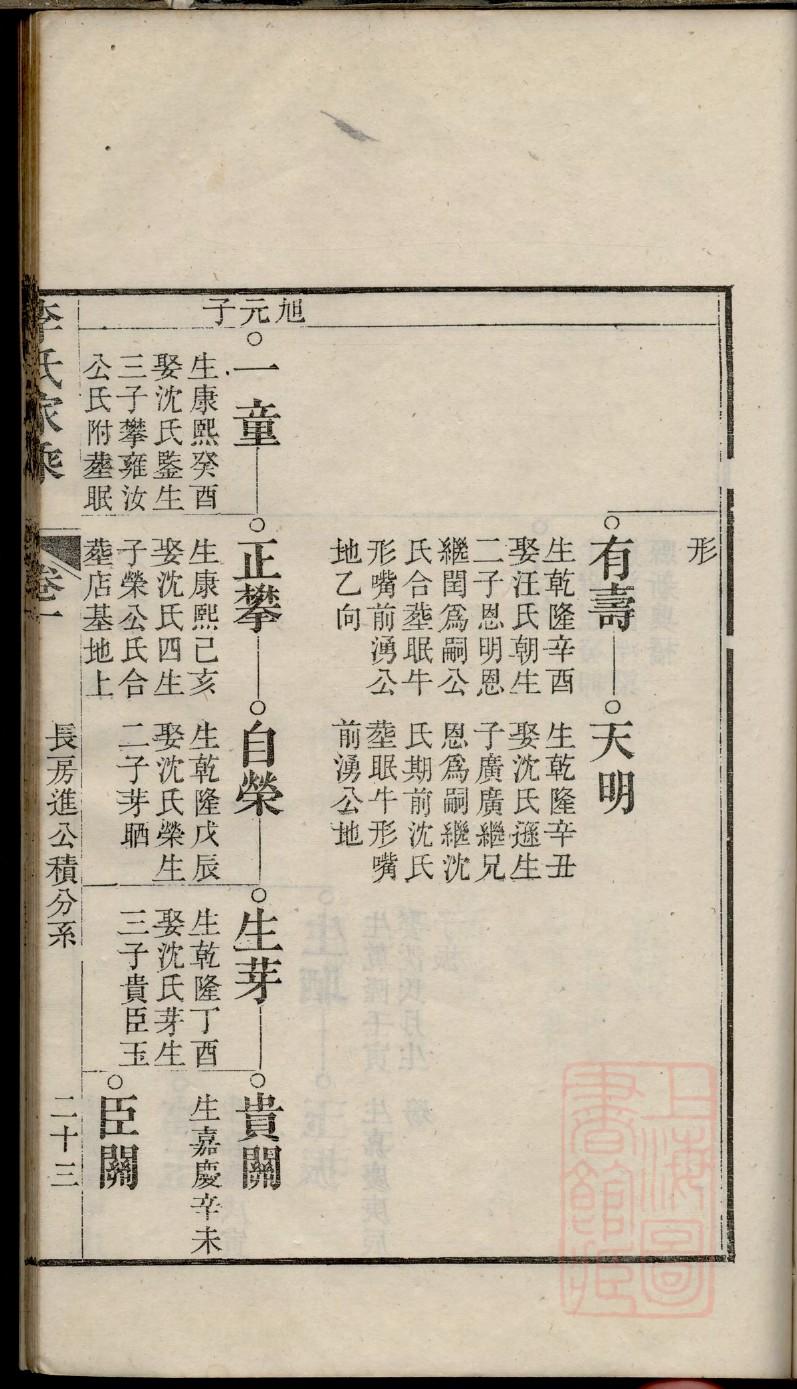 形
有壽
生乾隆辛酉
娶汪氏朝生
二子恩明恩
繼閏爲嗣公
氏合塟眠牛
形嘴前湧公
地乙向
天明
生乾隆辛丑
娶沈氏遜生
子廣廣繼兄
恩爲嗣繼沈
氏期前沈氏
塟眠牛形嘴
前湧公地
旭元子
一童
生康熙癸酉
娶沈氏鑒生
三子攀雍汝
公氏附塟眠
正攀
生康熙己亥
娶沈氏四生
子榮公氏合
塟店基地上
自榮
生乾隆戊辰
娶沈氏榮生
二子芽晒
生芽
生乾隆丁酉
娶沈氏芽生
三子貴臣玉
貴關
生嘉慶辛未
臣關
李氏家乘
卷一
長房進公積分系
二十三
上海圖
書館藏